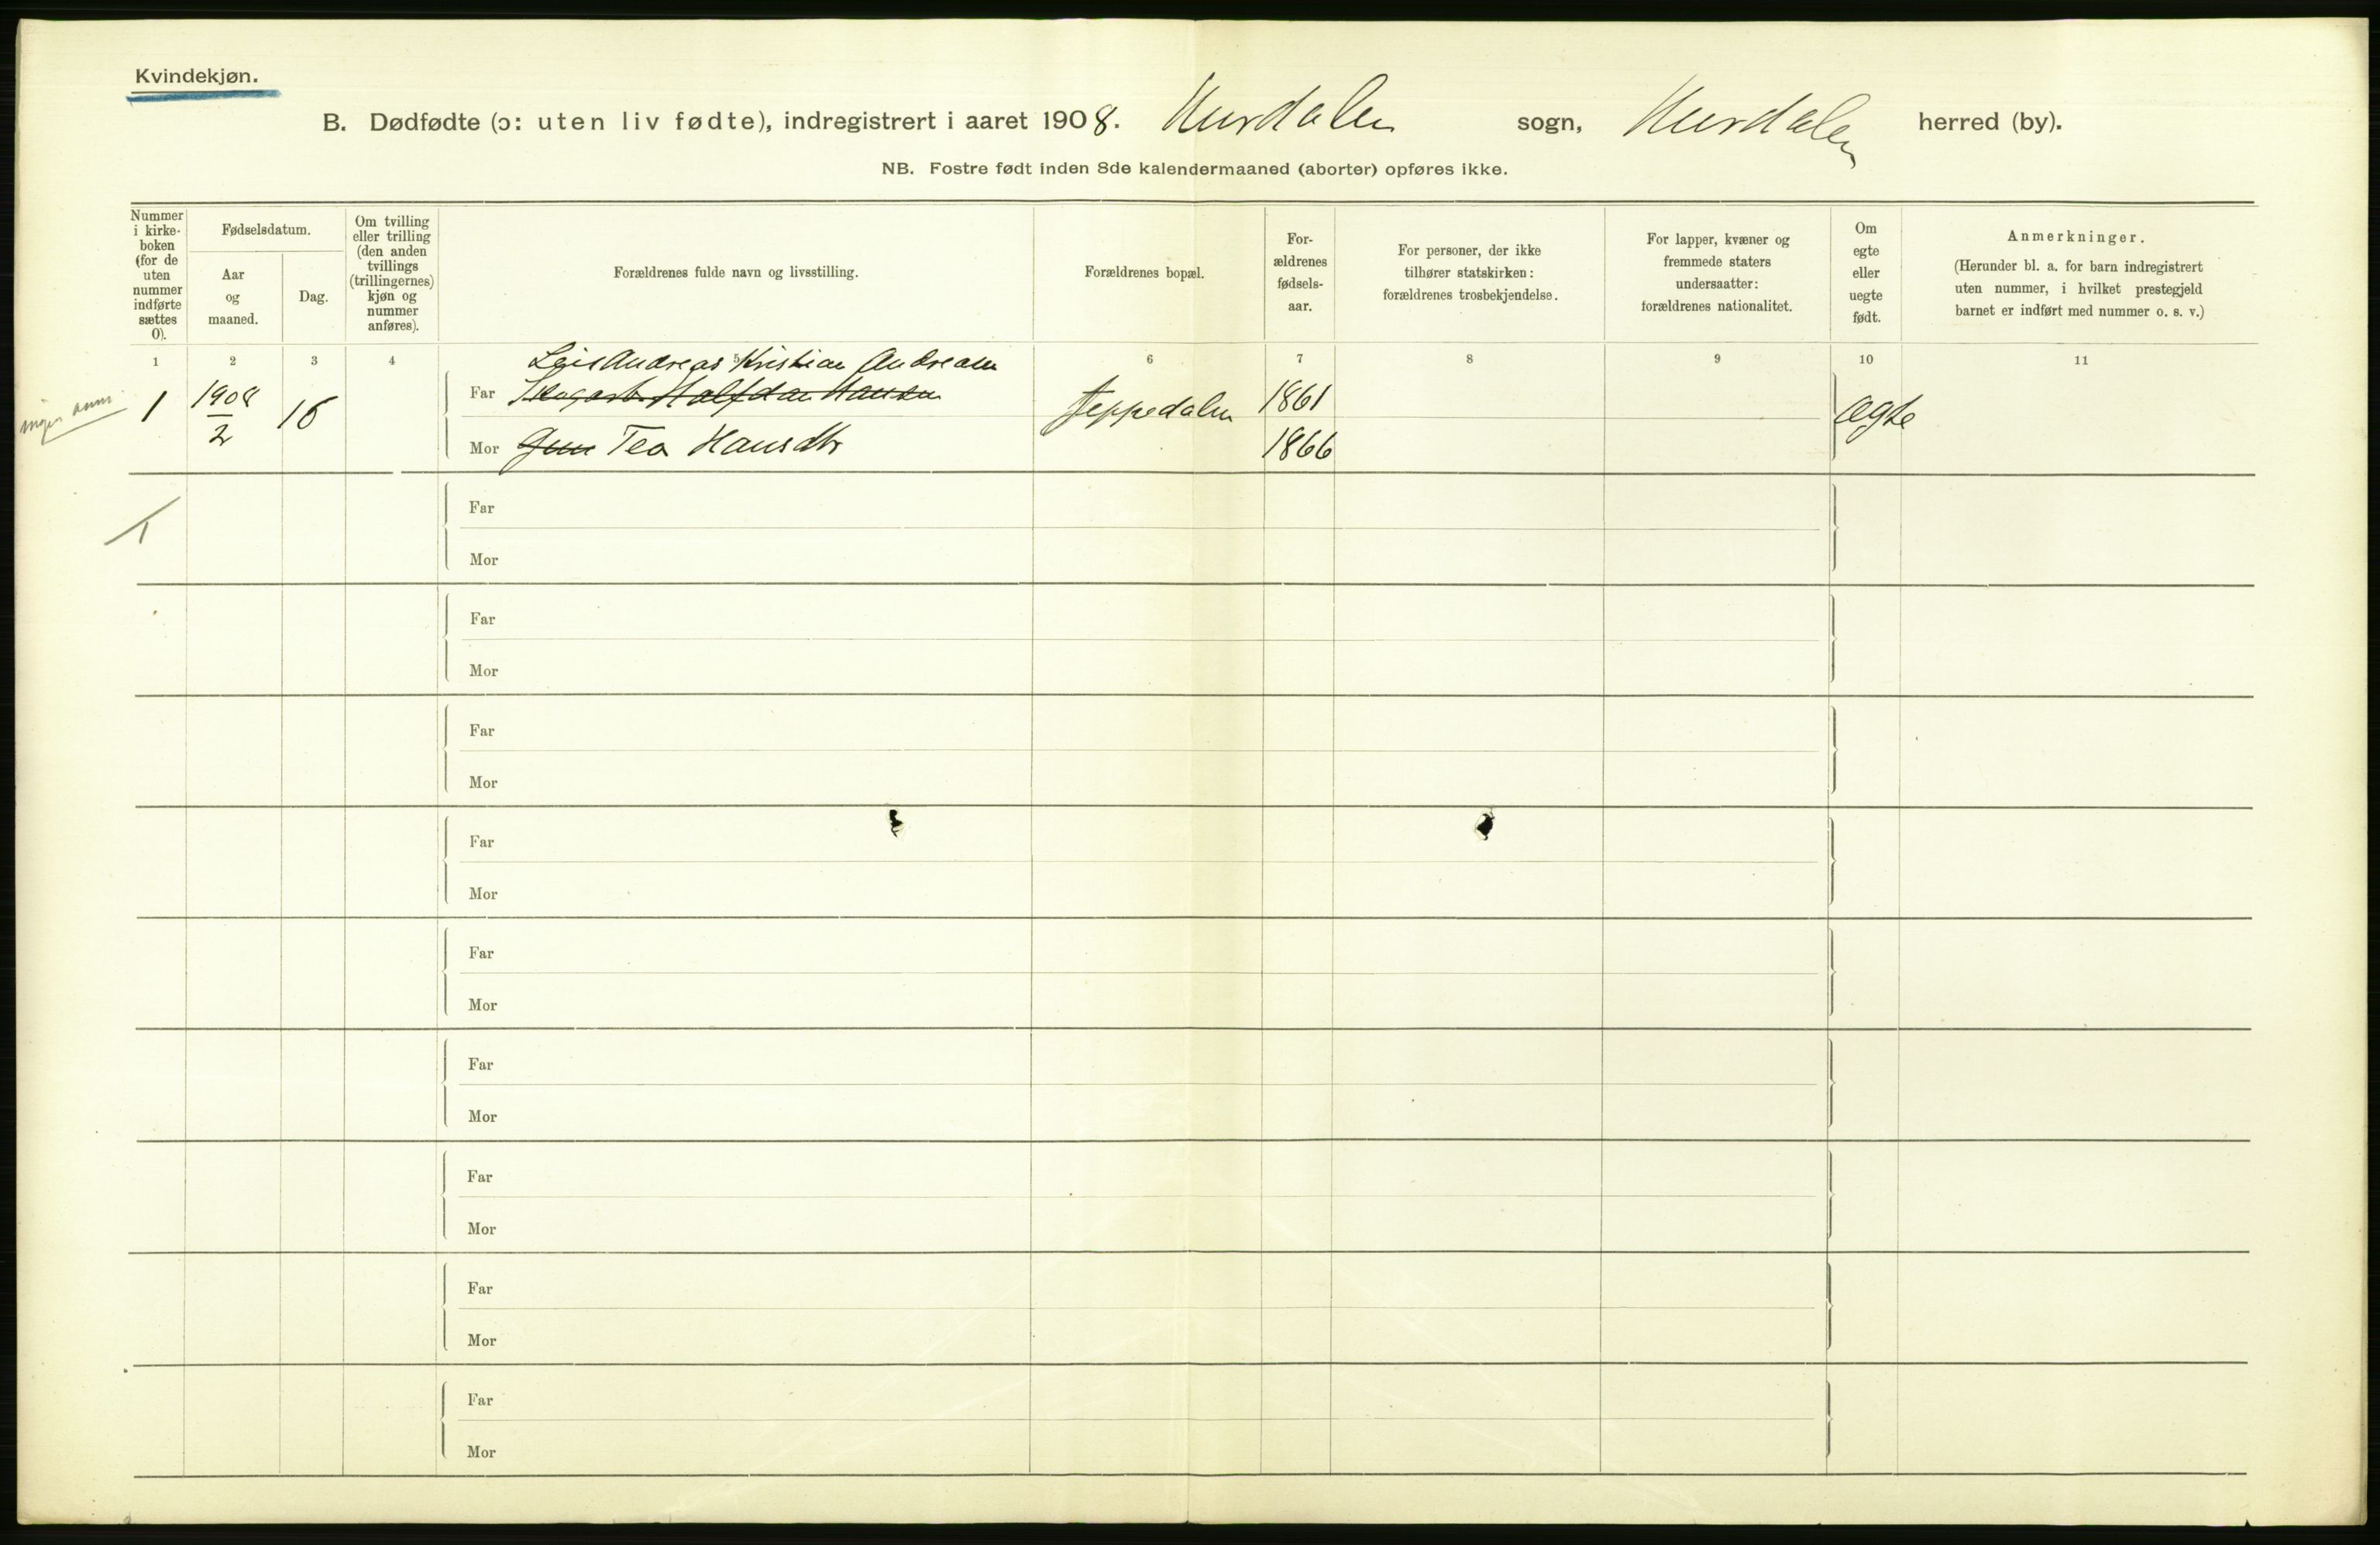 Kvindekjøn.
B. Dødfødte (ɔ: uten liv fødte), indregistrert i aaret 1908. Hurdalen sogn, Hurdalen herred (by).
NB. Fostre født inden 8de kalendermaaned (aborter) opføres ikke.
Nummer
i kirke-
boken
(for de
uten
nummer
indførte
sættes
0).
Fødselsdatum.
Aar
og
maaned.
Dag.
Om tvilling
eller trilling
(den anden
tvillings
(trillingernes)
kjøn og
nummer
anføres).
Forældrenes fulde navn og livsstilling.
Forældrenes bopæl.
For-
ældrenes
fødsels-
aar.
For personer, der ikke
tilhører statskirken:
forældrenes trosbekjendelse.
For lapper, kvæner og
fremmede staters
undersaatter:
forældrenes nationalitet.
Om
egte
eller
uegte
født.
Anmerkninger.
(Herunder bl. a. for barn indregistrert
uten nummer, i hvilket prestegjeld
barnet er indført med nummer o. s. v.)
1 2 3 4 5 6 7 8 9 10 11
Andreas Kristian Andreasen
1 1908 16 Far Halfdan Hansen Jeppedalen 1861 ægte
2
Mor Tea Hansdtr 1866
Far
Mor
Far
Mor
Far
Mor
Far
Mor
Far
Mor
Far
Mor
Far
Mor
Far
Mor
Far
Mor